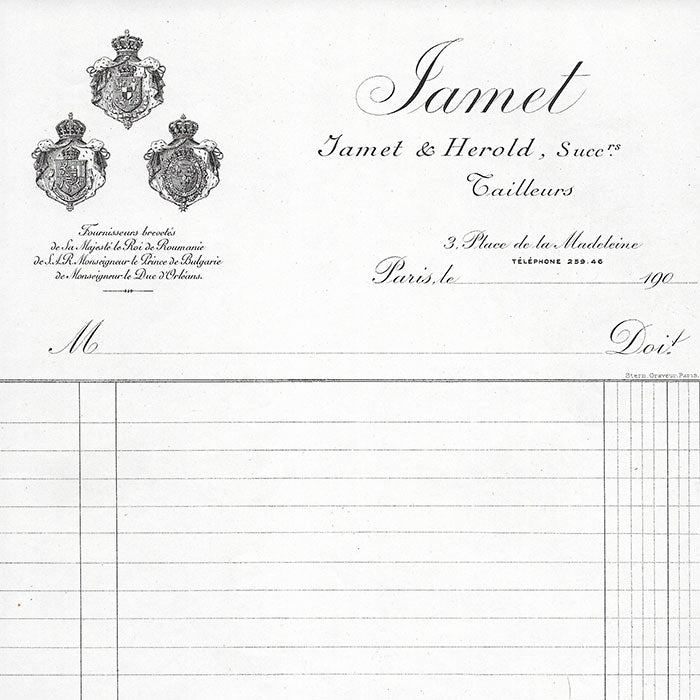 Jamet
Jamet & Herold, Succrs
Tailleurs
3, Place de la Madeleine
TÉLÉPHONE 259.46
Paris, le 190
Fournisseurs brevetés
de Sa Majesté le Roi de Roumanie
de S.A.R. Monseigneur le Prince de Bulgarie
de Monseigneur le Duc d'Orléans.
M Doit
Stern, Graveur, Paris.